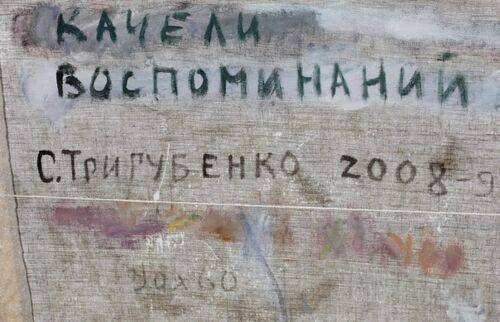 КАЧЕЛИ
ВОСПОМИНАНИЙ
С.ТРИГУБЕНКО 2008-9
90х60